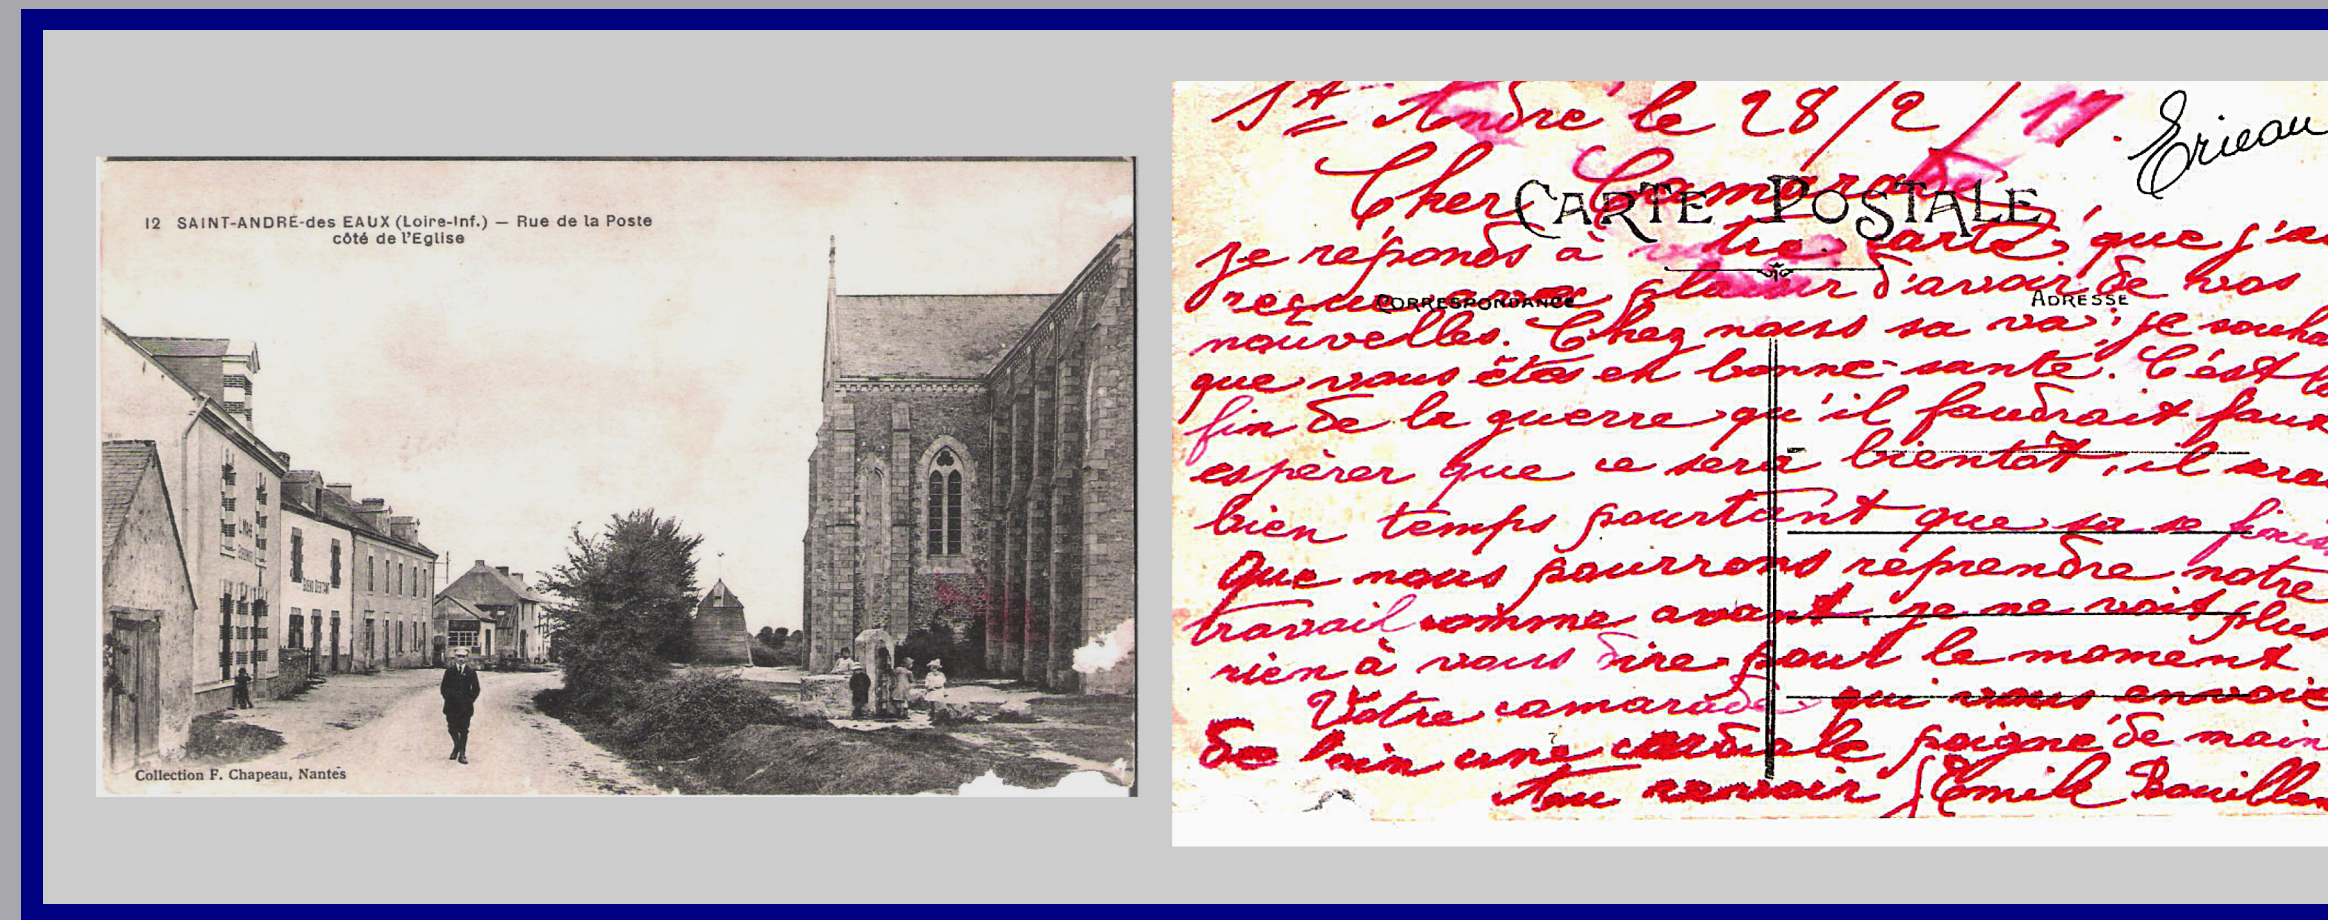 12 SAINT-ANDRÉ-des EAUX (Loire-Inf.) — Rue de la Poste
côté de l'Eglise
Collection F. Chapeau, Nantes
St André le 28/2/17.
Erieau
Cher Camarade
CARTE POSTALE
je réponds à votre carte, que j'ai
reçue avec plaisir d'avoir de vos
CORRESPONDANCE
ADRESSE
nouvelles. Chez nous sa va; je souha
que vous êtes en bonne santé. C'est la
fin de la guerre qu'il faudrait faux
espèrer que ce sera bientôt, il serai
bien temps pourtant que sa se finis
Que nous pourrons reprendre notre
travail comme avant. je ne voit plus
rien à vous dire pour le moment
Votre camarade qui vous envoie
de loin une cordiale poigné de main
Au revoir Emile Bouillan